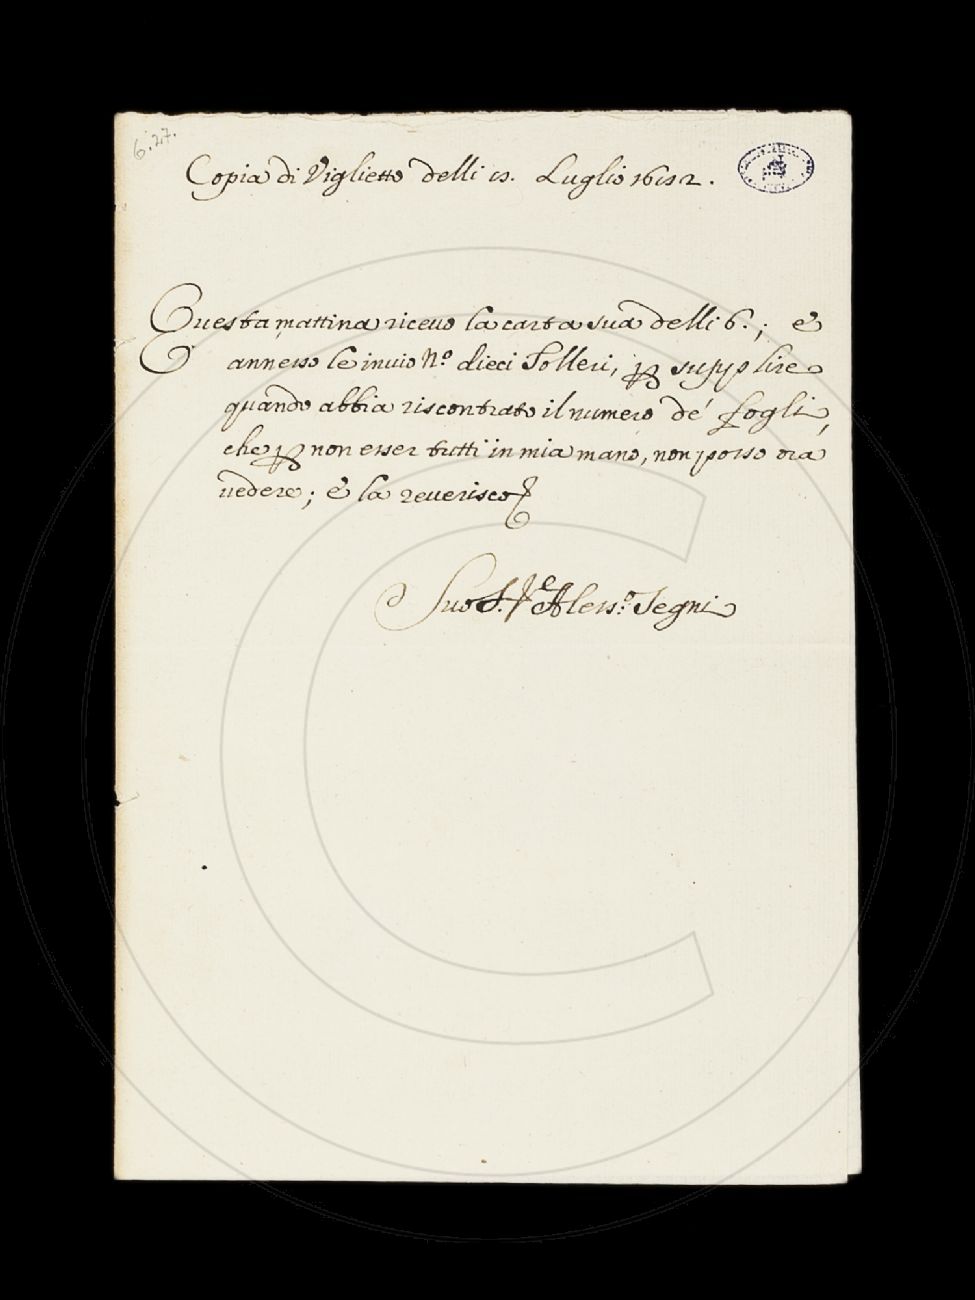 6.27.
Copia di Viglietto delli 15. Luglio 1652.
Questa mattina riceuo la carta sua delli 6.; e
annesso le inuio N.º dieci Tolleri, p supplire
quando abbia riscontrato il numero de' fogli,
che p non esser tutti in mia mano, non posso ora
uedere; e la reuerisco
Suo S.re Aless.º Segni